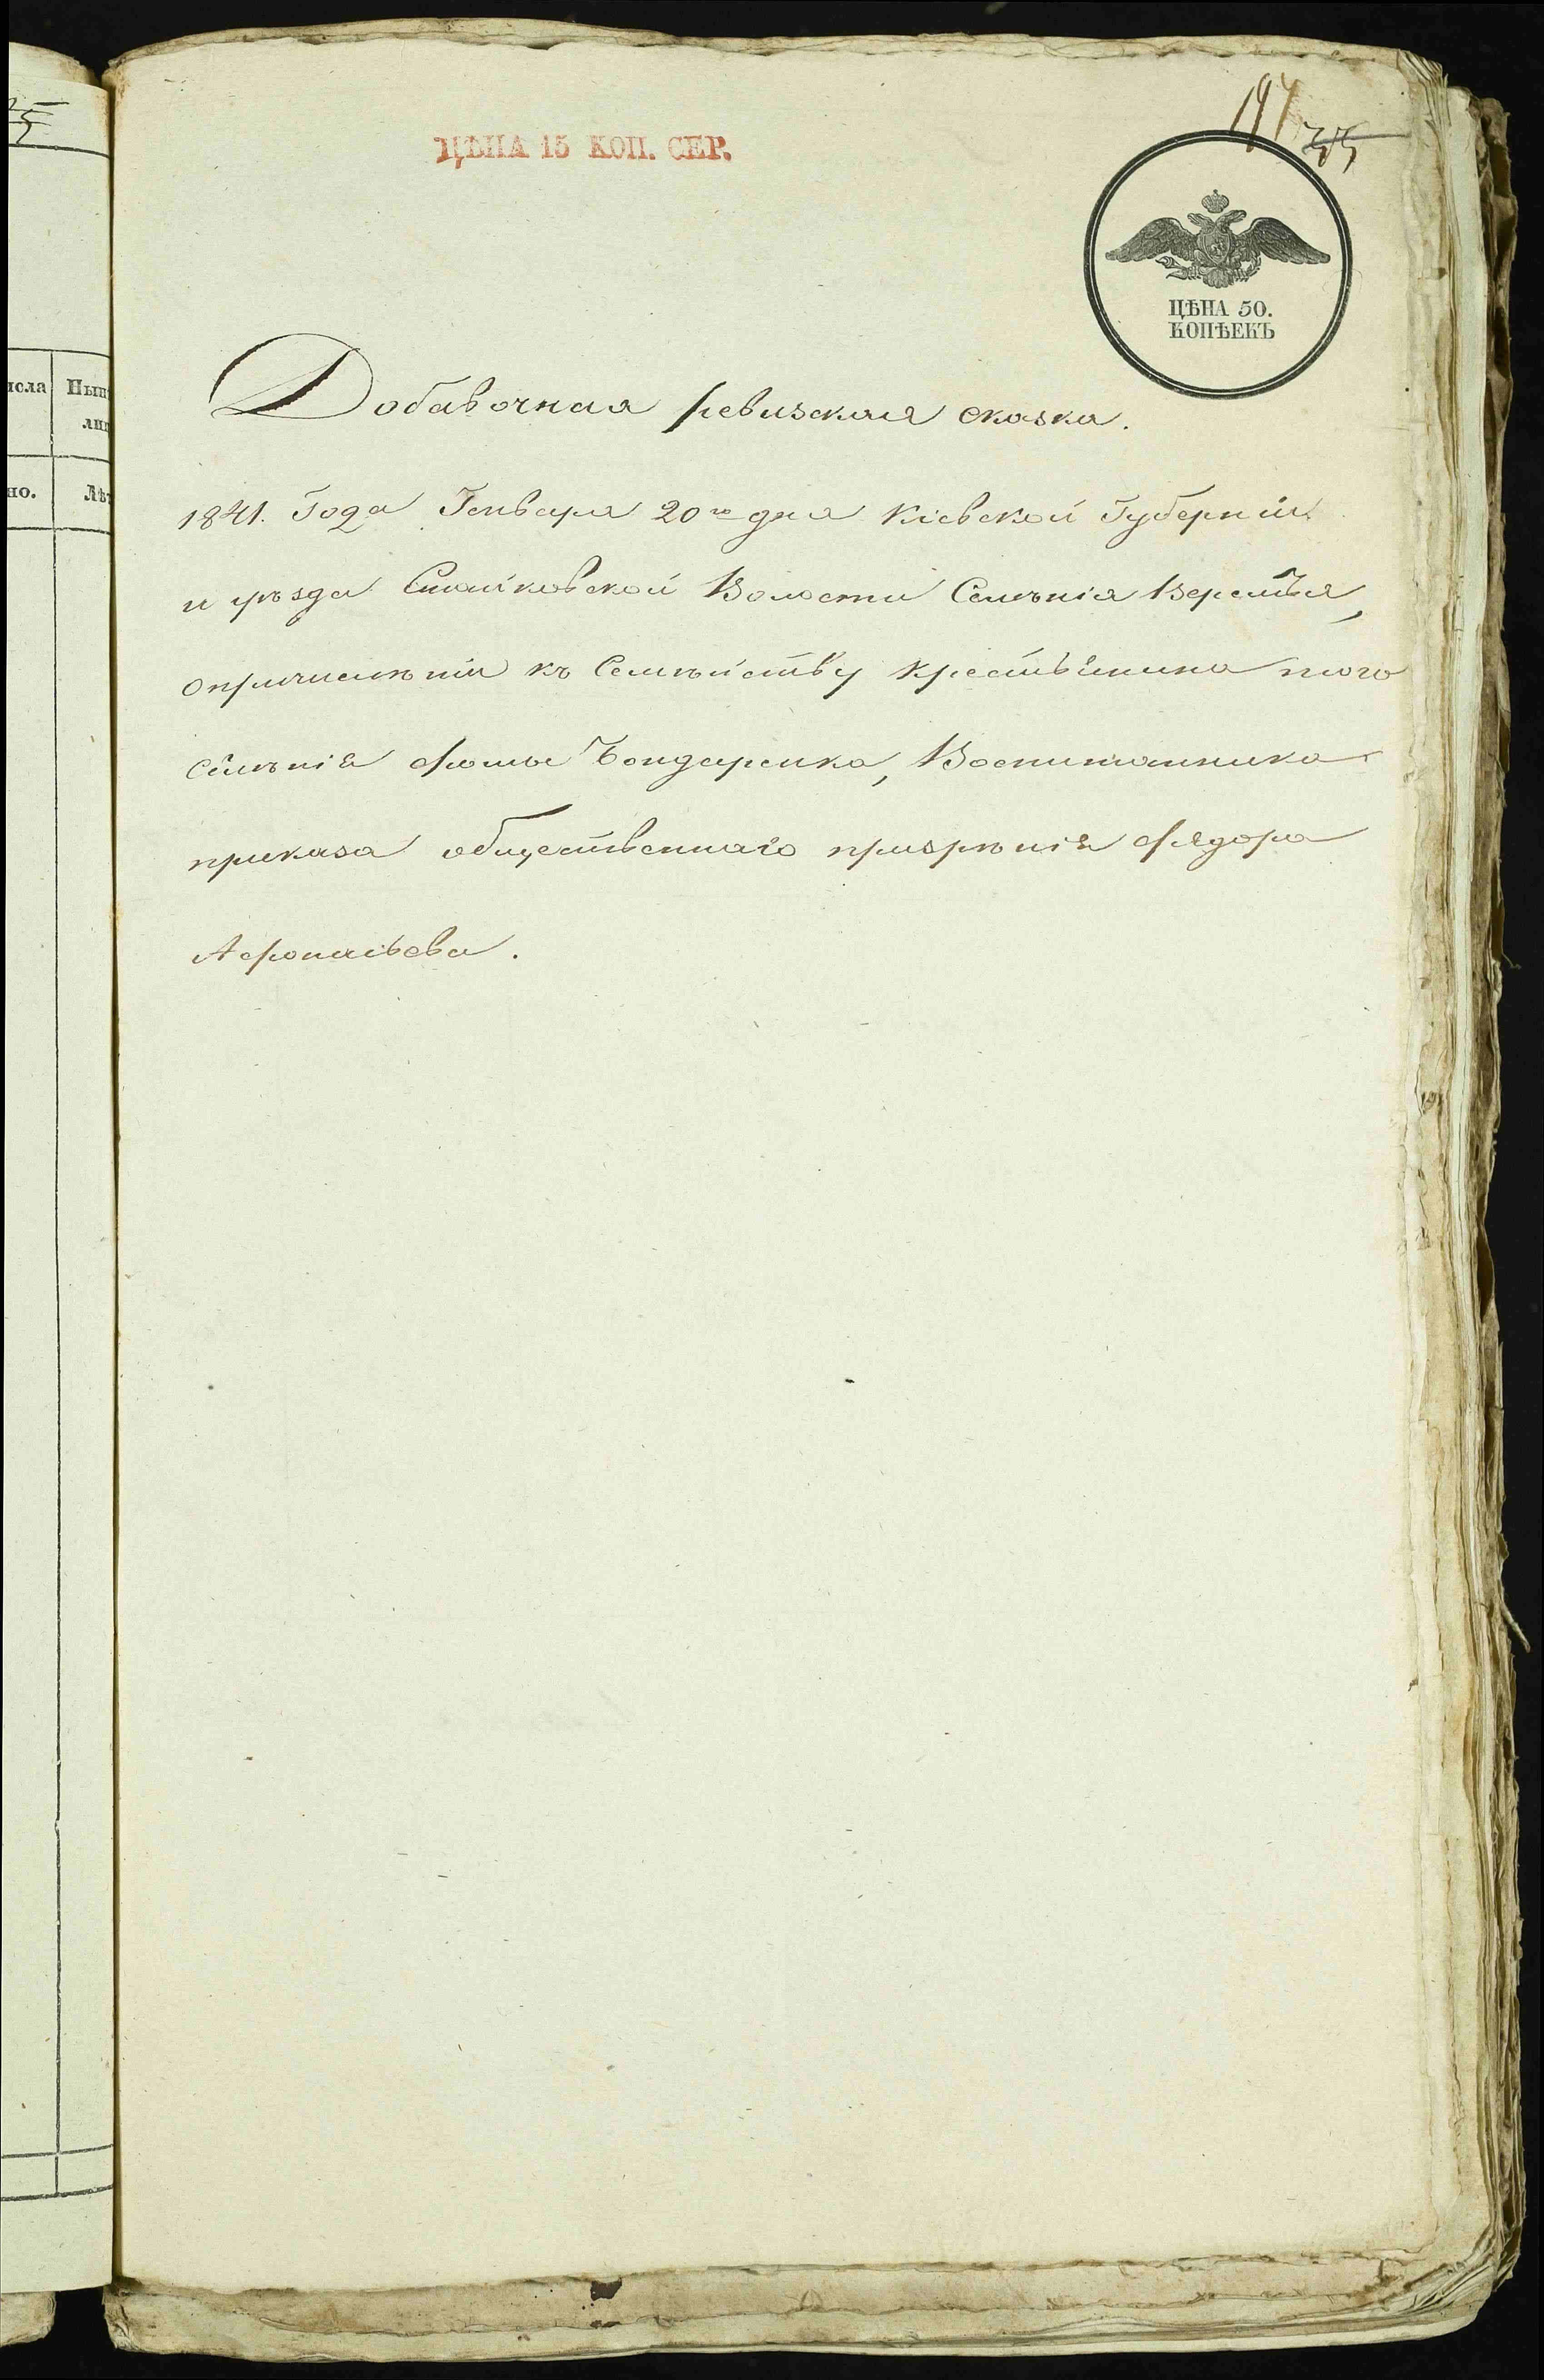 197
35
ЦѢНА 15 КОП. СЕР.
ЦѢНА 50.
КОПѢЕКЪ
Добавочная ревизская сказка.
1841. Года Генваря 20го дня Кіевской Губерніи
и уѣзда Стайковской Волости Селѣнія Веремья,
опричислѣніи къ Семѣйству крестьянина того
Селѣнія Фомы Бондаренка, Воспитанника
приказа общественнаго призрѣнія Фядора
Афонасьева.